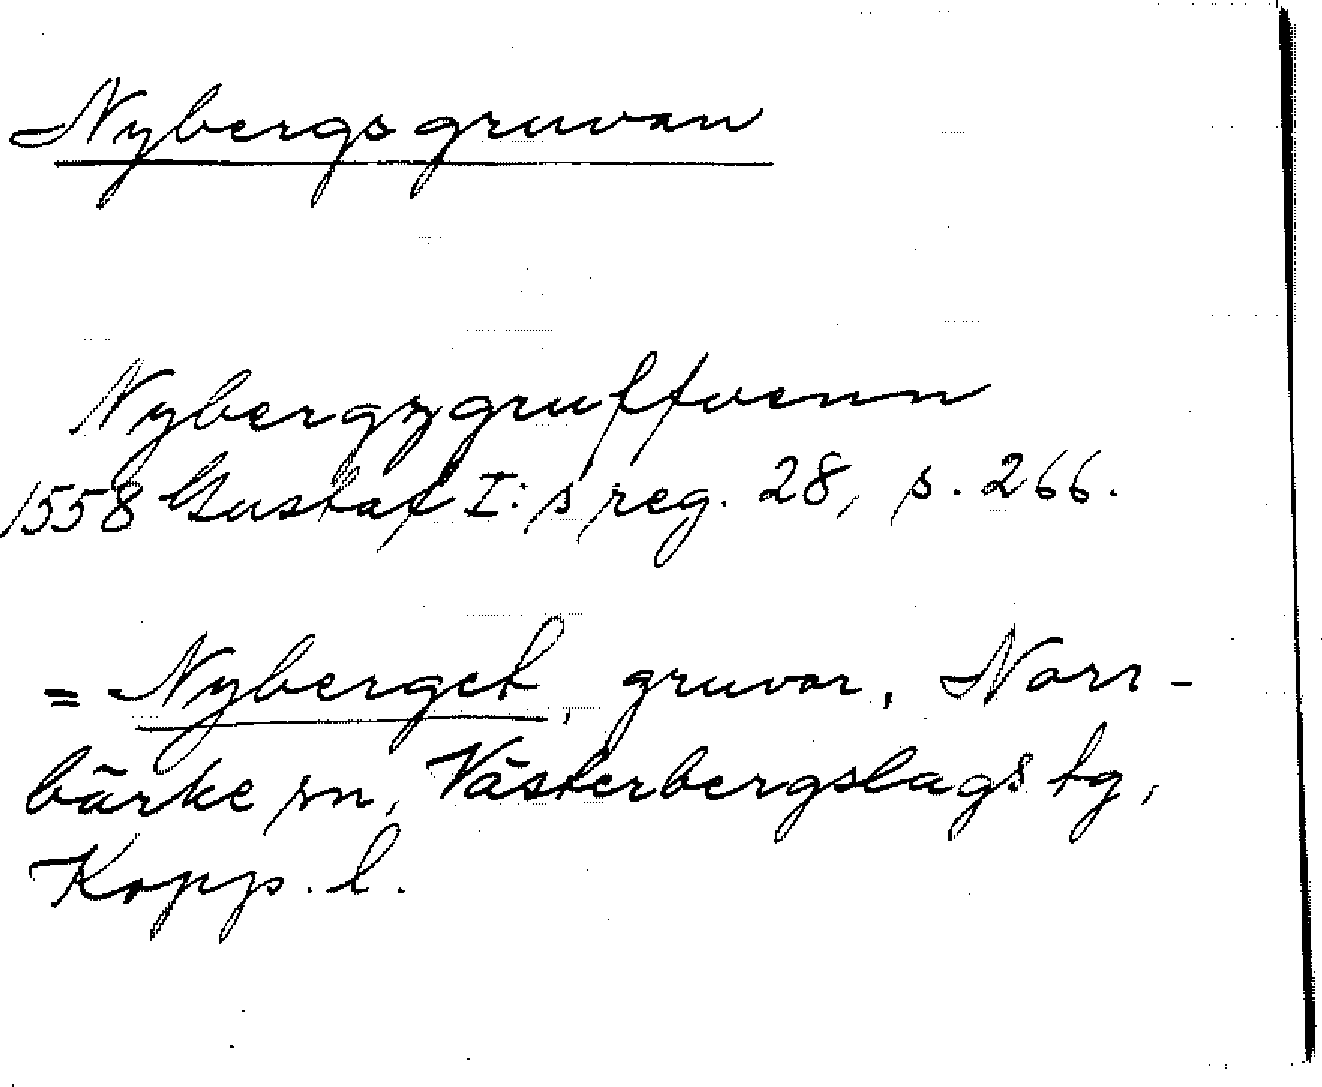 Nybergsgruvan
Nybergzgruffvenn
1558 Gustaf I:s reg. 28, s. 266.
= Nyberget, gruvor, Norr-
bärke sn, Västerbergslags tg,
Kopp. l.